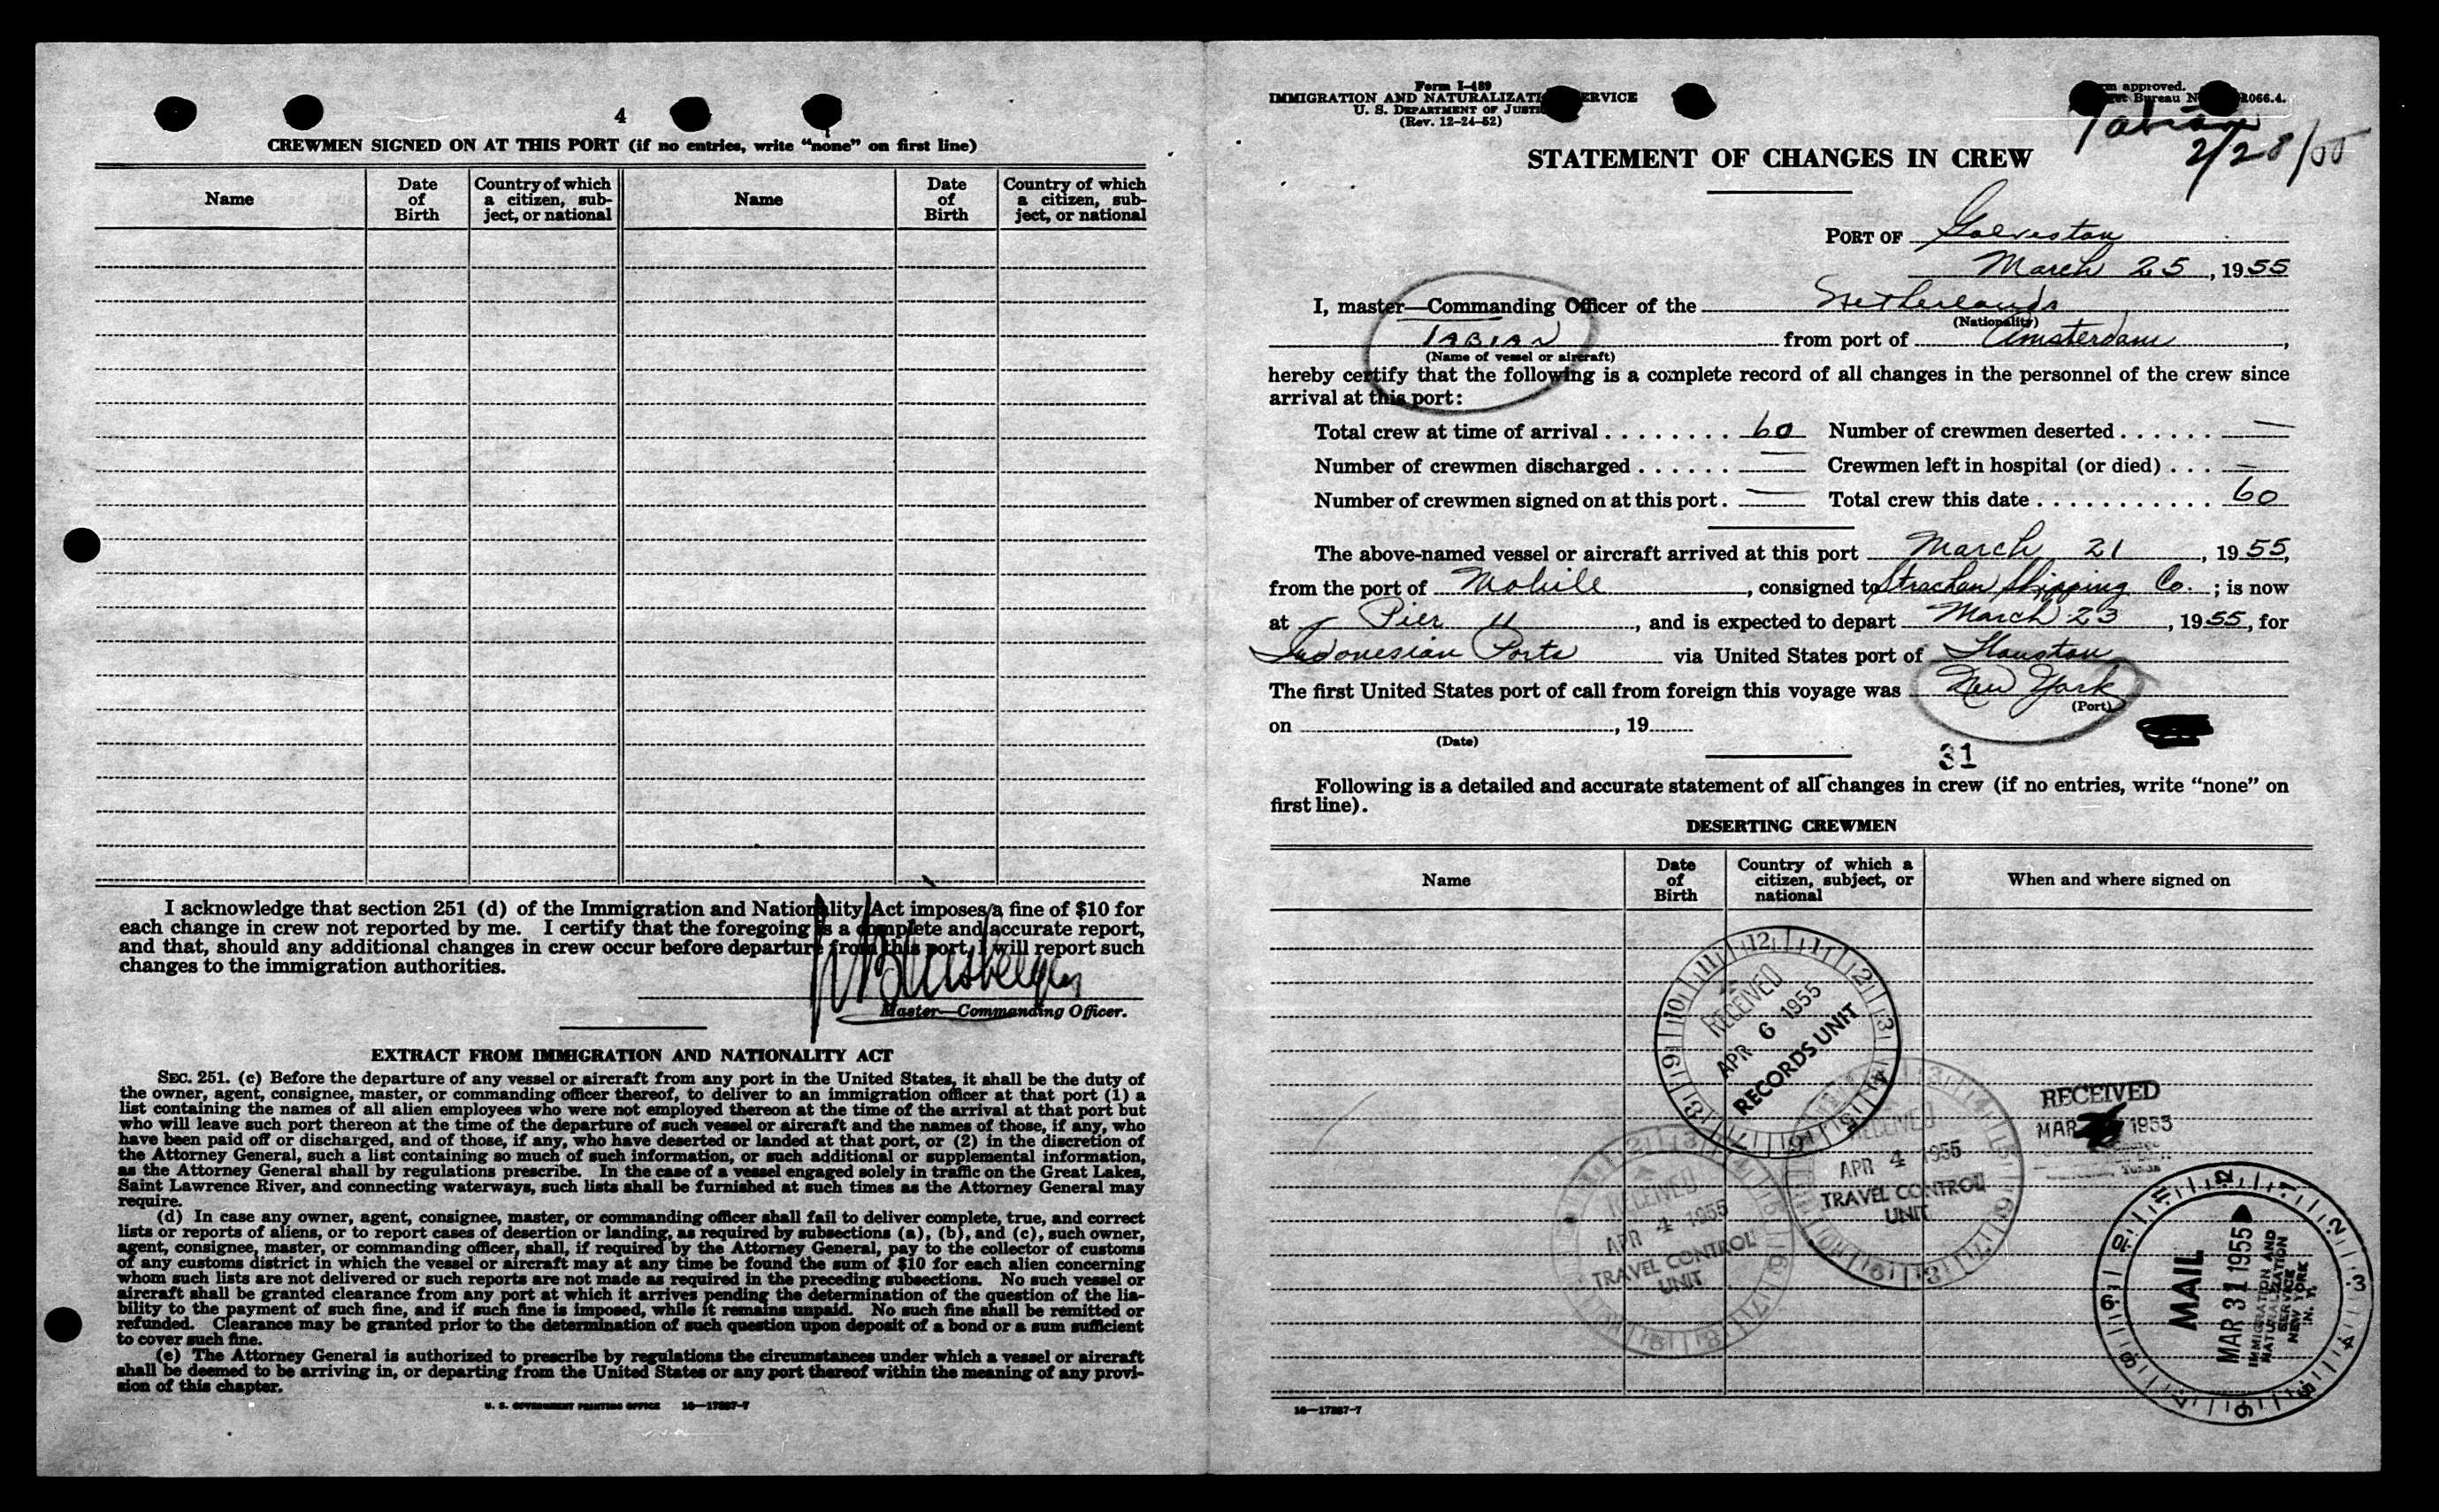 4
CREWMEN SIGNED ON AT THIS PORT (if no entries, write “none” on first line)
Name
Date of Birth
Country of which a citizen, subject, or national
Name
Date of Birth
Country of which a citizen, subject, or national
I acknowledge that section 251 (d) of the Immigration and Nationality Act imposes a fine of $10 for
each change in crew not reported by me. I certify that the foregoing is a complete and accurate report,
and that, should any additional changes in crew occur before departure from this port, I will report such
changes to the immigration authorities.
Master—Commanding Officer.
EXTRACT FROM IMMIGRATION AND NATIONALITY ACT
SEC. 251. (c) Before the departure of any vessel or aircraft from any port in the United States, it shall be the duty of
the owner, agent, consignee, master, or commanding officer thereof, to deliver to an immigration officer at that port (1) a
list containing the names of all alien employees who were not employed thereon at the time of the arrival at that port but
who will leave such port thereon at the time of the departure of such vessel or aircraft and the names of those, if any, who
have been paid off or discharged, and of those, if any, who have deserted or landed at that port, or (2) in the discretion of
the Attorney General, such a list containing so much of such information, or such additional or supplemental information,
as the Attorney General shall by regulations prescribe. In the case of a vessel engaged solely in traffic on the Great Lakes,
Saint Lawrence River, and connecting waterways, such lists shall be furnished at such times as the Attorney General may
require.
(d) In case any owner, agent, consignee, master, or commanding officer shall fail to deliver complete, true, and correct
lists or reports of aliens, or to report cases of desertion or landing, as required by subsections (a), (b), and (c), such owner,
agent, consignee, master, or commanding officer, shall, if required by the Attorney General, pay to the collector of customs
of any customs district in which the vessel or aircraft may at any time be found the sum of $10 for each alien concerning
whom such lists are not delivered or such reports are not made as required in the preceding subsections. No such vessel or
aircraft shall be granted clearance from any port at which it arrives pending the determination of the question of the lia-
bility to the payment of such fine, and if such fine is imposed, while it remains unpaid. No such fine shall be remitted or
refunded. Clearance may be granted prior to the determination of such question upon deposit of a bond or a sum sufficient
to cover such fine.
(e) The Attorney General is authorized to prescribe by regulations the circumstances under which a vessel or aircraft
shall be deemed to be arriving in, or departing from the United States or any port thereof within the meaning of any provi-
sion of this chapter.
U. S. GOVERNMENT PRINTING OFFICE 16—17287-7
Form I-489
IMMIGRATION AND NATURALIZATI ERVICE
U. S. DEPARTMENT OF JUSTI
(Rev. 12-24-52)
approved.
Bureau N 066.4.
Tabian
2/28/55
STATEMENT OF CHANGES IN CREW
PORT OF Galveston
March 25, 1955
I, master—Commanding Officer of the Netherlands
(Nationality)
TABIAN from port of Amsterdam,
(Name of vessel or aircraft)
hereby certify that the following is a complete record of all changes in the personnel of the crew since
arrival at this port:
Total crew at time of arrival . . . . . . . . 60 Number of crewmen deserted . . . . . . —
Number of crewmen discharged . . . . . . — Crewmen left in hospital (or died) . . . —
Number of crewmen signed on at this port . — Total crew this date . . . . . . . . . . . 60
The above-named vessel or aircraft arrived at this port March 21, 1955,
from the port of Mobile, consigned to Strachan Shipping Co. ; is now
at Pier 11, and is expected to depart March 23, 1955, for
Indonesian Ports via United States port of Houston
The first United States port of call from foreign this voyage was New York
(Port)
on , 19
(Date)
31
Following is a detailed and accurate statement of all changes in crew (if no entries, write “none” on
first line).
DESERTING CREWMEN
Name
Date of Birth
Country of which a citizen, subject, or national
When and where signed on
RECEIVED
APR 6 1955
RECORDS UNIT
RECEIVED
APR 4 1955
TRAVEL CONTROL
UNIT
RECEIVED
APR 4 1955
TRAVEL CONTROL
UNIT
RECEIVED
MAR 1955
MAIL
MAR 31 1955
IMMIGRATION AND
NATURALIZATION
SERVICE
NEW YORK
N. Y.
16—17287-7